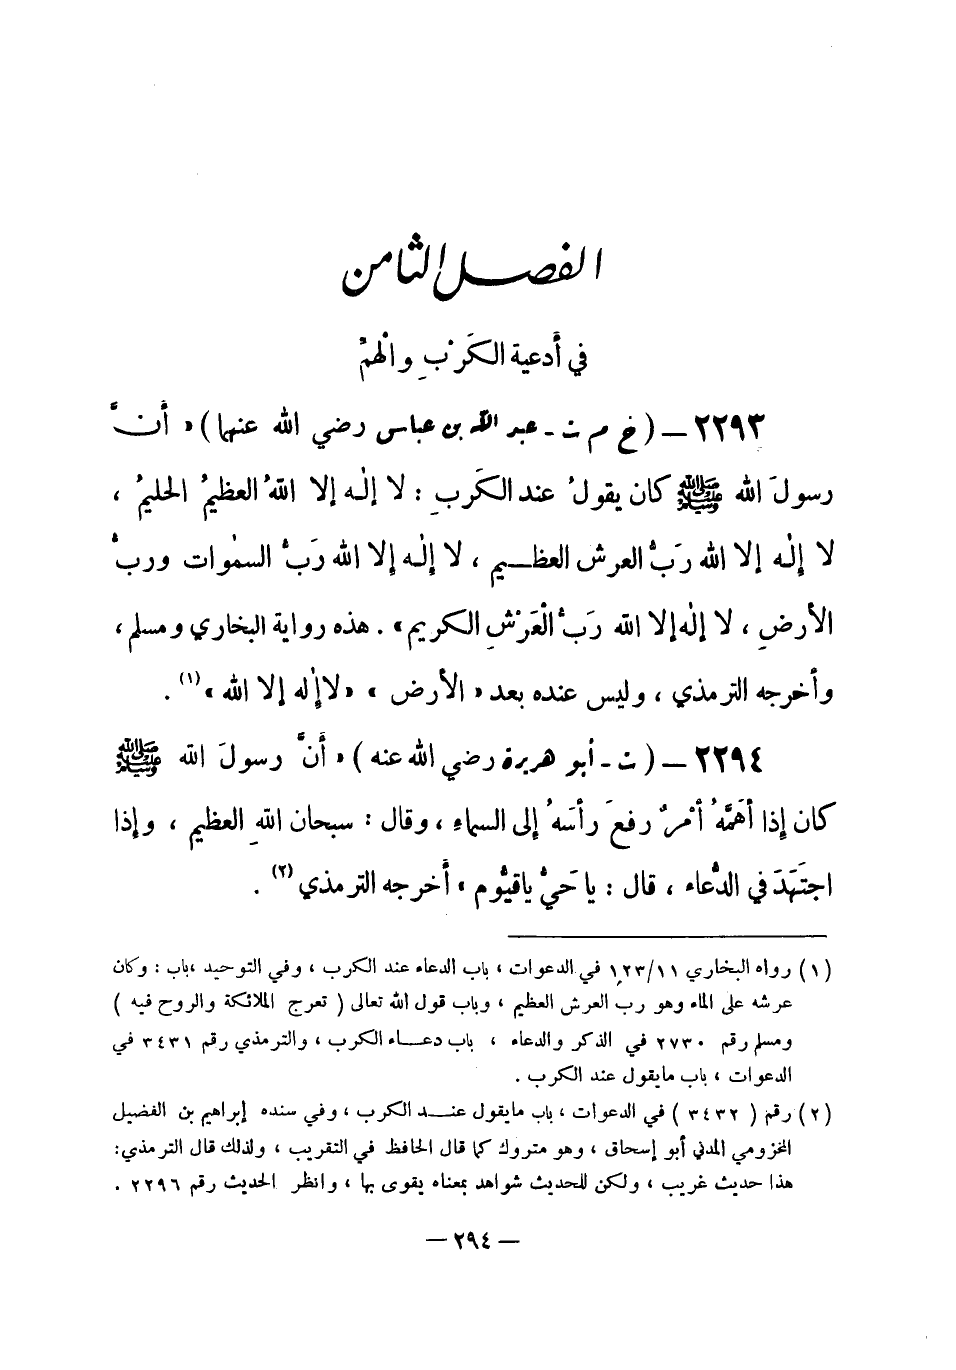 الفصل الثامن
في أدعية الكَرْبِ والهمّ
٢٢٩٣ – (خ م ت - عبد الله بن عباس رضي الله عنهما) «أنَّ
رسولَ الله ﷺ كان يقولُ عند الكَربِ : لا إله إلا اللهُ العظيمُ الحليمُ ،
لا إِلٰه إلا الله رَبُّ العرش العظيم ، لا إِلٰه إلا الله رَبُّ السمٰوات وربُّ
الأرضِ ، لا إلٰه إلا الله رَبُّ الْعَرْشِ الكريم» . هذه رواية البخاري ومسلم ،
وأخرجه الترمذي ، وليس عنده بعد «الأرض» «لا إلٰه إلا الله»(١) .
٢٢٩٤ – (ت - أبو هريرة رضي الله عنه) «أنَّ رسولَ الله ﷺ
كان إِذا أهَمَّهُ أمْرٌ رفعَ رأسَهُ إلى السماءِ ، وقال : سبحان اللهِ العظيم ، وإذا
اجتَهَدَ في الدُّعاء ، قال : يا حَيُّ ياقيُّوم» أخرجه الترمذي(٢) .
(١) رواه البخاري ١٢٣/١١ في الدعوات ، باب الدعاء عند الكرب ، وفي التوحيد ،باب : وكان
عرشه على الماء وهو رب العرش العظيم ، وباب قول الله تعالى ( تعرج الملائكة والروح فيه )
ومسلم رقم ٢٧٣٠ في الذكر والدعاء ، باب دعاء الكرب ، والترمذي رقم ٣٤٣١ في
الدعوات ، باب مايقول عند الكرب .
(٢) رقم ( ٣٤٣٢ ) في الدعوات ، باب مايقول عند الكرب ، وفي سنده إبراهيم بن الفضيل
المخزومي المدني أبو إسحاق ، وهو متروك كما قال الحافظ في التقريب ، ولذلك قال الترمذي:
هذا حديث غريب ، ولكن للحديث شواهد بمعناه يقوى بها ، وانظر الحديث رقم ٢٢٩٦ .
– ٢٩٤ –